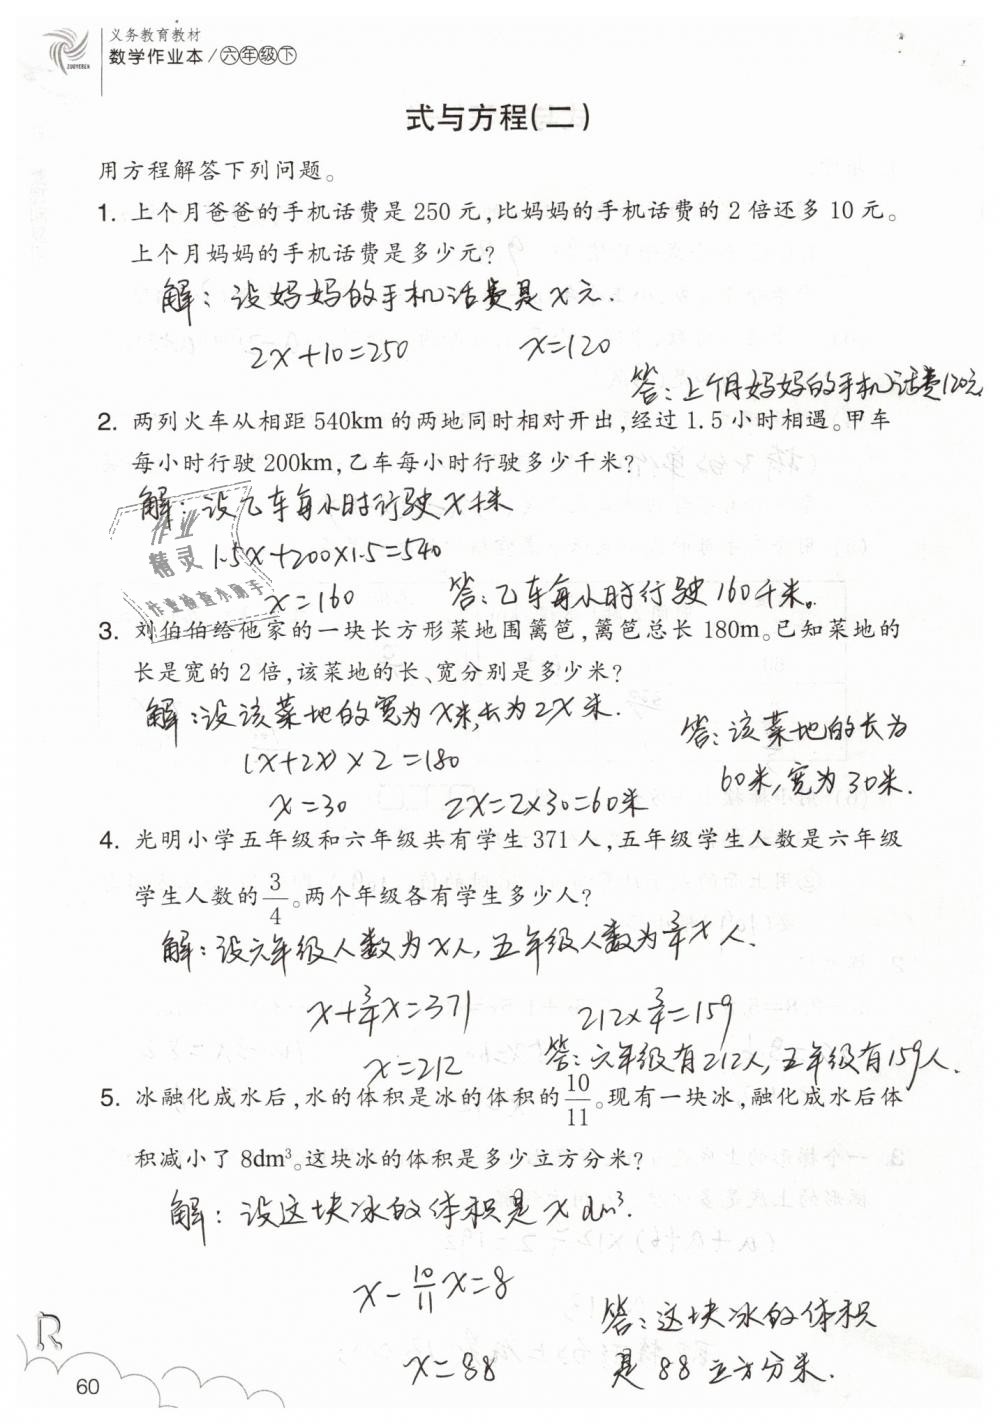 义务教育教材
数学作业本/六年级下
ZUOYEBEN
式与方程(二)
用方程解答下列问题。
1. 上个月爸爸的手机话费是 250 元,比妈妈的手机话费的 2 倍还多 10 元。
上个月妈妈的手机话费是多少元?
解：设妈妈的手机话费是x元.
2x+10=250 x=120
答：上个月妈妈的手机话费120元
2. 两列火车从相距 540km 的两地同时相对开出,经过 1.5 小时相遇。甲车
每小时行驶 200km,乙车每小时行驶多少千米?
解：设乙车每小时行驶x千米
作业
精灵
作业检查小助手
1.5x+200×1.5=540
x=160 答：乙车每小时行驶160千米。
3. 刘伯伯给他家的一块长方形菜地围篱笆,篱笆总长 180m。已知菜地的
长是宽的 2 倍,该菜地的长、宽分别是多少米?
解：设该菜地的宽为x米,长为2x米.
(x+2x)×2=180
x=30 2x=2×30=60米
答：该菜地的长为
60米,宽为30米.
4. 光明小学五年级和六年级共有学生 371 人,五年级学生人数是六年级
学生人数的 3/4。两个年级各有学生多少人?
解：设六年级人数为x人,五年级人数为3/4x人.
x+3/4x=371 212×3/4=159
x=212 答：六年级有212人,五年级有159人.
5. 冰融化成水后,水的体积是冰的体积的 10/11。现有一块冰,融化成水后体
积减小了 8dm³。这块冰的体积是多少立方分米?
解：设这块冰的体积是x dm³.
x-10/11x=8
x=88
答：这块冰的体积
是88立方分米.
R
60